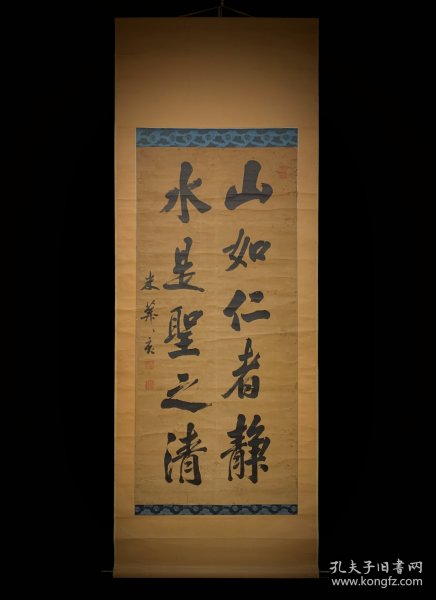 山如仁者静
水是聖之清
米葊亥
孔夫子旧书网
www.kongfz.com